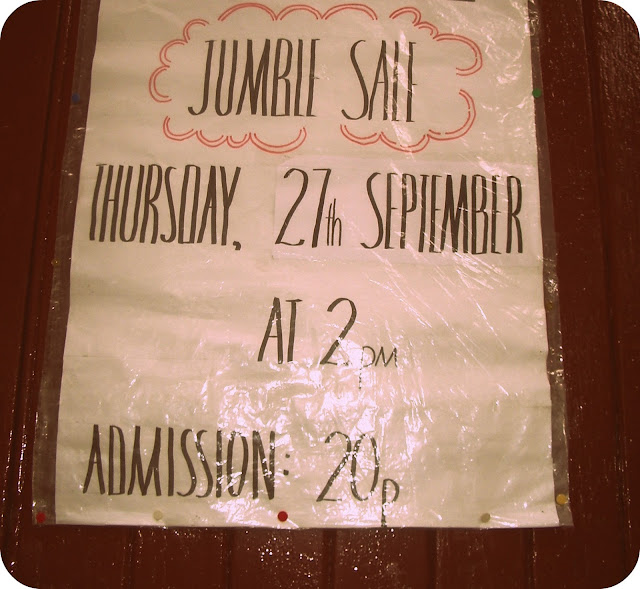 JUMBLE SALE
THURSDAY, 27th SEPTEMBER
AT 2pm
ADMISSION: 20p